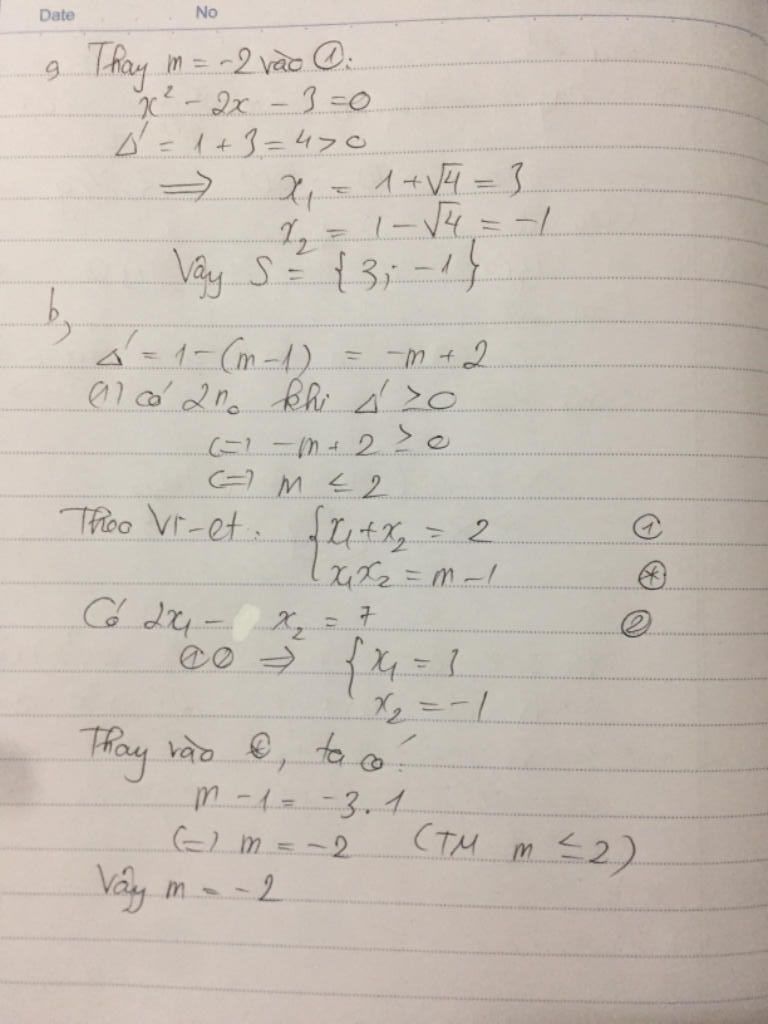 Date No
a, Thay m = -2 vào ①:
x² - 2x - 3 = 0
Δ' = 1 + 3 = 4 > 0
=> x₁ = 1 + √4 = 3
x₂ = 1 - √4 = -1
Vậy S = {3; -1}
b,
Δ' = 1 - (m - 1) = -m + 2
(1) có 2n₀ khi Δ' ≥ 0
(=) -m + 2 ≥ 0
(=) m ≤ 2
Theo Vi-et: { x₁ + x₂ = 2 ①
x₁x₂ = m - 1 (*)
Có 2x₁ - x₂ = 7 ②
①② => { x₁ = 3
x₂ = -1
Thay vào (*), ta có:
m - 1 = -3.1
(=) m = -2 (TM m ≤ 2)
Vậy m = -2